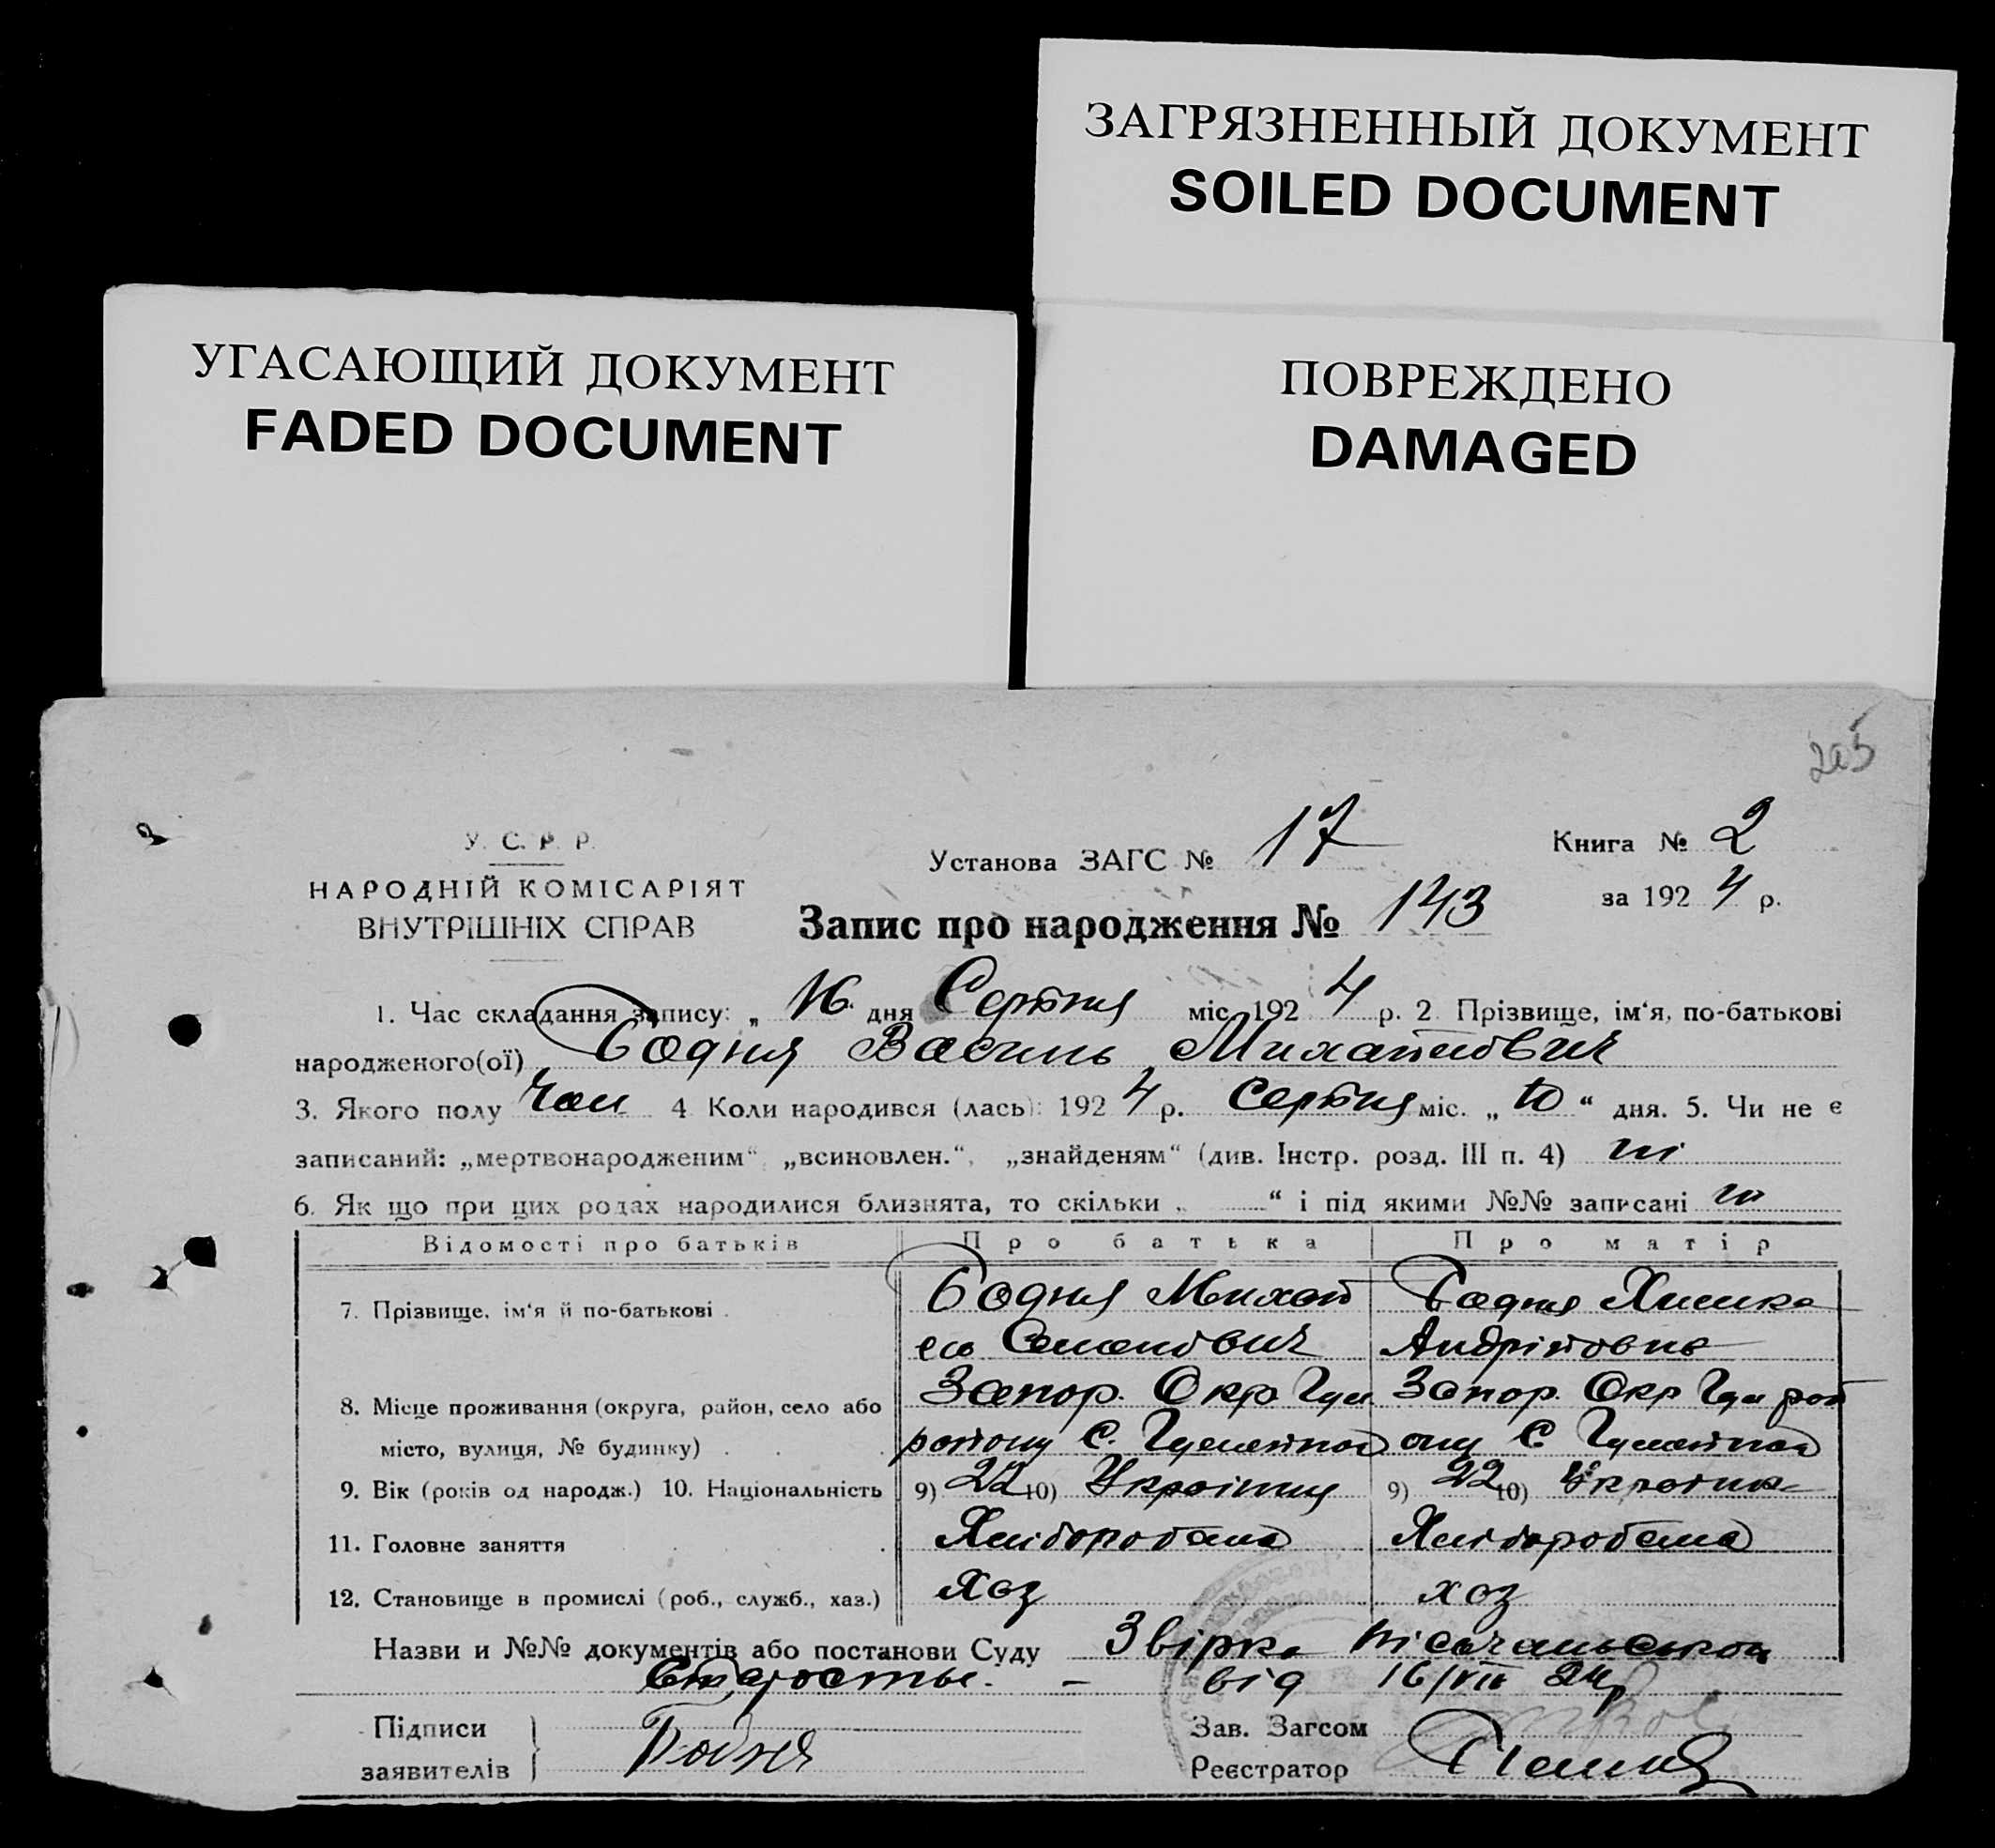 ЗАГРЯЗНЕННЫЙ ДОКУМЕНТ
SOILED DOCUMENT
УГАСАЮЩИЙ ДОКУМЕНТ
FADED DOCUMENT
ПОВРЕЖДЕНО
DAMAGED
205
У. С. Р. Р.
НАРОДНІЙ КОМІСАРІЯТ
ВНУТРІШНІХ СПРАВ
Установа ЗАГС № 17
Книга № 2
за 1924 р.
Запис про народження № 143
1. Час складання запису: „ 16 дня Серпня міс. 1924 р. 2 Прізвище, ім‘я, по-батькові
народженого(ої) Бодня Василь Михайлович
3. Якого полу Чол 4 Коли народився (лась): 1924 р. Серпня міс. „ 10 “ дня. 5. Чи не є
записаний: „мертвонародженим“, „всиновлен.“, „знайденям“ (див. Інстр. розд. III п. 4) ні
6. Як що при цих родах народилися близнята, то скільки „ “ і під якими №№ записані ні
Відомості про батьків Про батька Про матір
7. Прізвище, ім‘я й по-батькові Бодня Михай Бодня Химка
Семенович Андріївна
8. Місце проживання (округа, район, село або Запор. Окр. Запор. Окр
місто, вулиця, № будинку) району С. С.
9. Вік (років од народж.) 10. Національність 9) 22 10) Українец 9) 22 10) Українка
11. Головне заняття Хліборобств Хліборобств
12. Становище в промислі (роб., служб., хаз.) Хоз хоз
Назви и №№ документів або постанови Суду Звірка
від 16/VIII 24 р
Підписи
заявителів } Бодня
Зав. Загсом
Реєстратор